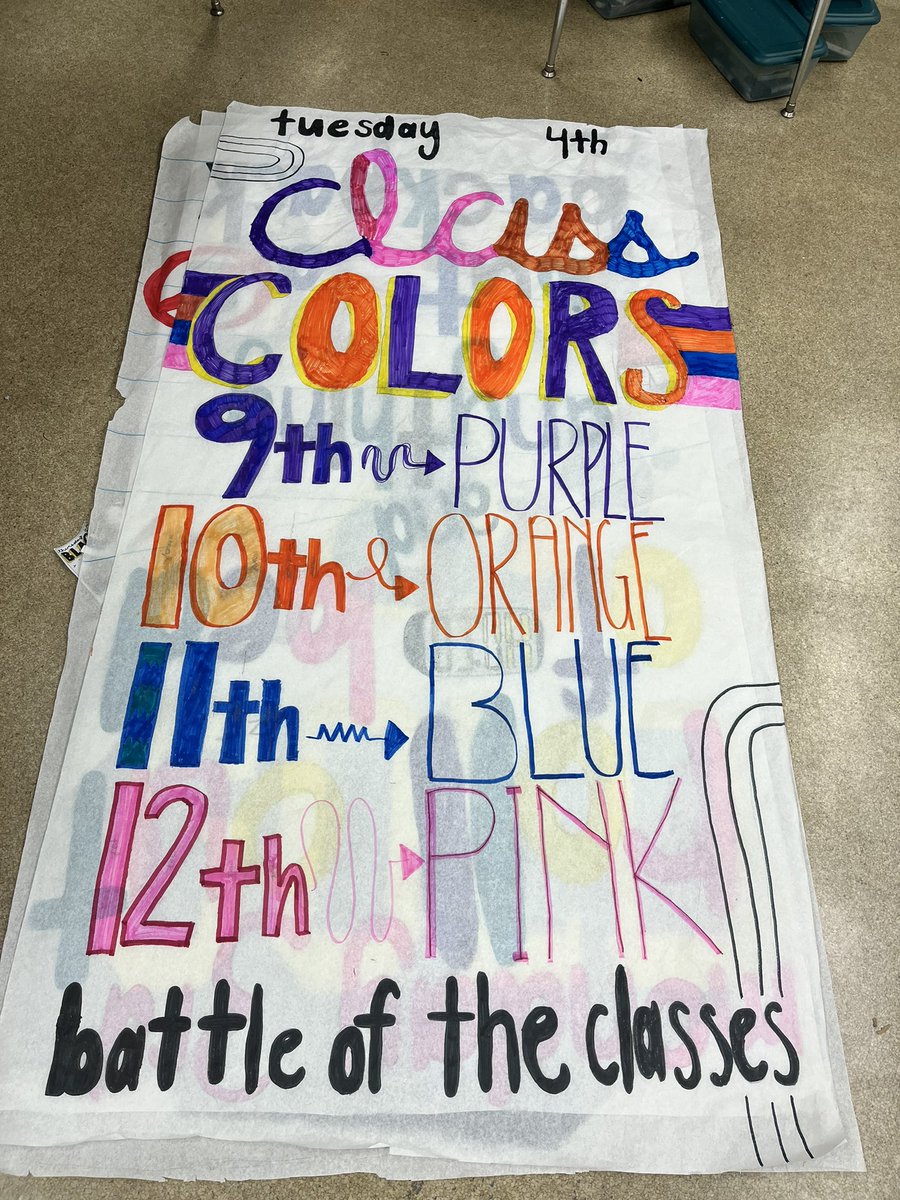 tuesday 4th
class
COLORS
9th PURPLE
10th ORANGE
11th BLUE
12th PINK
battle of the classes